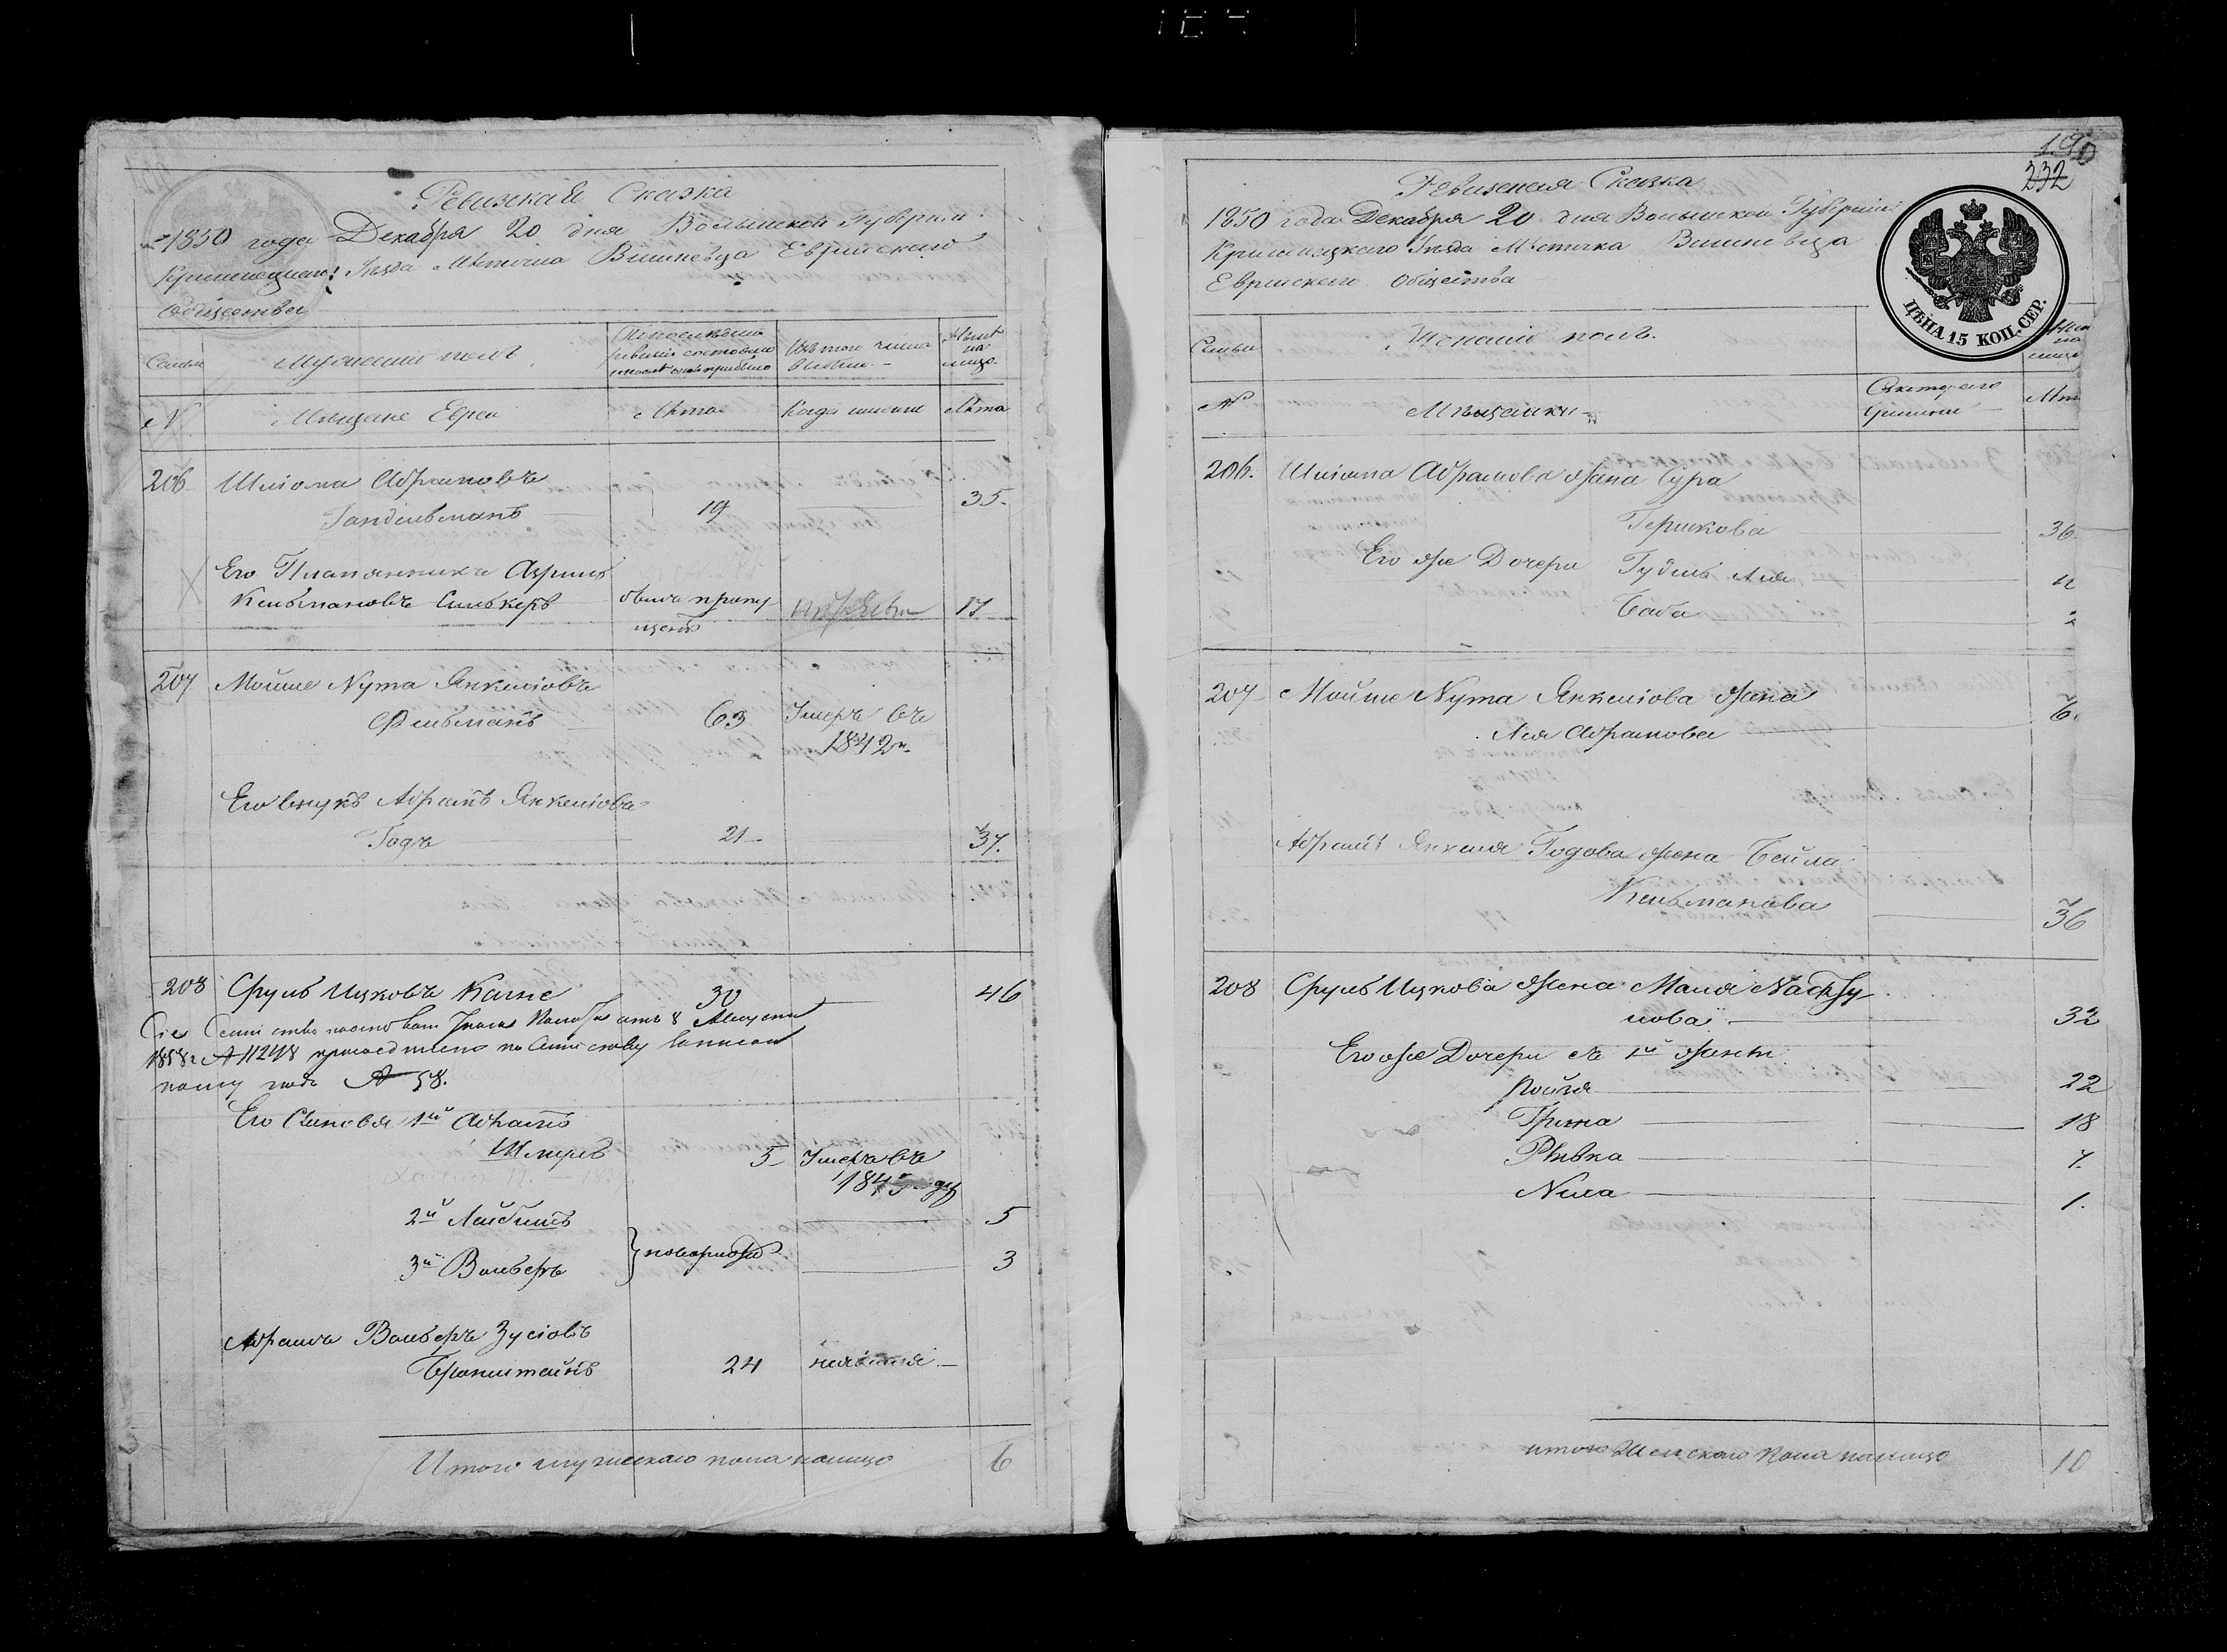 Ревизкая Сказка
1850 года Декабря 20 дня Волынской Губернии
Кременецкаго Уезда Мѣстечка Вишневца Еврейскаго
Общества
Семьи
Мужеский полъ
По последней ревизии состояло и после оной прибыло
Изъ того числа выбыло
Ныне на лицо
№
Мещане Евреи
Лѣта
Когда именно
Лѣта
206 Шлiома Абрамовъ
Гандельманъ 19 35.
Его Племянникъ Азриль
Кельмановъ Силькеръ былъ пропу 17
щенъ
207 Мойше Нута Янкелiовъ
Фельманъ 63 Умеръ въ
1842 г.
Его внукъ Абрамъ Янкелiовъ
Годъ 21 37.
208 Сруль Ицковъ Кацъ 30 46
Сие Семейство
1858 г. № 11248
подъ № 58.
Его Сыновья 1й Абрамъ
Шмеръ 5 Умеръ въ
1845 году
2й Лейбишъ 5
3й Вольберъ новорожд 3
Абрамъ Вольберъ Зусiовъ
Бронштейнъ 24 неявился
Итого мужескаго пола налицо 6
190
232
Ревизская Сказка
1850 года Декабря 20 дня Волынской Губернии
Кременецкого Уезда Местечка Вишневца
Еврейского Общества
ЦѢНА 15 КОП. СЕР.
Семьи
Женский полъ.
на лицо
№
Мѣщанки
Съ которого времени
Лѣта
206. Шлiома Абрамова жена Сура
Гершкова 36.
Его же Дочери Гудель Лея
Баба 2
207 Мойше Нута Янкелiова жена
Лея Абрамова
Абрамъ Янкеля Годова жена Бейла
Кельманова 36
208 Сруль Ицкова жена Маля
нова 32
Его же Дочери съ 1й жены
Ройзя 22
18
Ривка 7.
1.
итого Женскаго пола налицо 10